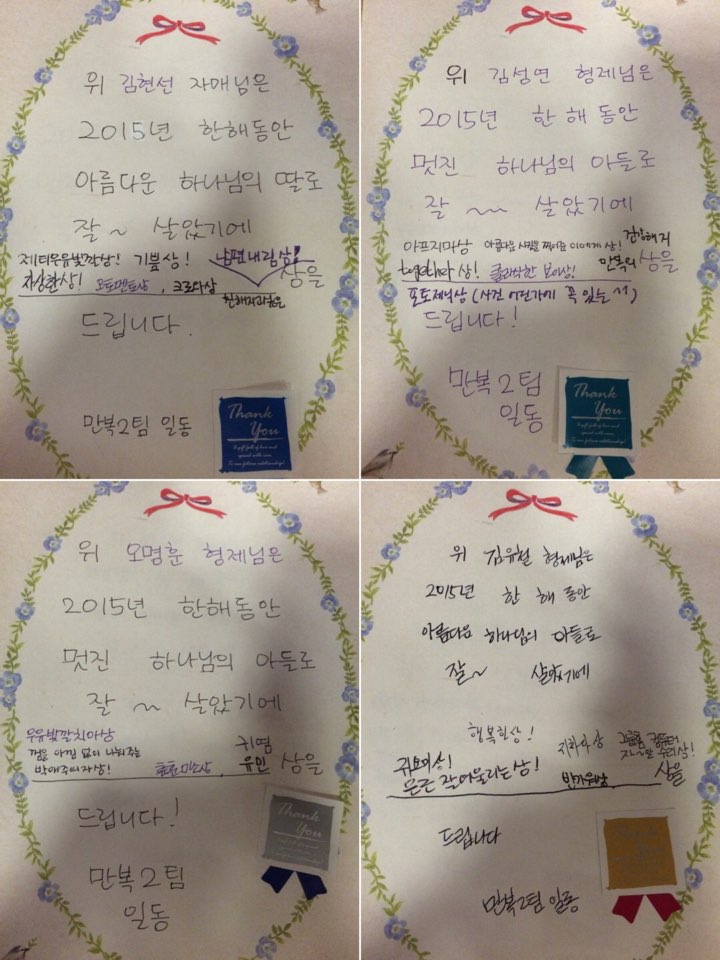 위 김현선 자매님은
2015년 한해동안
아름다운 하나님의 딸로
잘 ~ 살았기에
기쁨상! 남편내림상!
자상환상! , 크로다상 상을
드립니다.
만복2팀 일동
Thank
You
위 김성연 형제님은
2015년 한 해 동안
멋진 하나님의 아들로
잘 ~ 살았기에
아프지마상 아름다운 사진을 찍어준 이에게 상! 건강해지
together상! 만복의 상을
포토제닉상 (사진 어딘가에 꼭 있는 ㅋㅋ)
드립니다!
만복2팀
일동
Thank
You
위 오명훈 형제님은
2015년 한해동안
멋진 하나님의 아들로
잘 ~ 살았기에
우유빛깔치아상
껌을 아낌 없이 나눠주는
박애주의자상! 귀염
유민 상을
드립니다!
만복2팀
일동
Thank
You
위 김유철 형제님은
2015년 한 해 동안
아름다운 하나님의 아들로
잘~ 살았기에
행복회상!
귀요미상! 지화자상
은근 잘어울리는상! 반가워상 상을
드립니다
만복2팀 일동